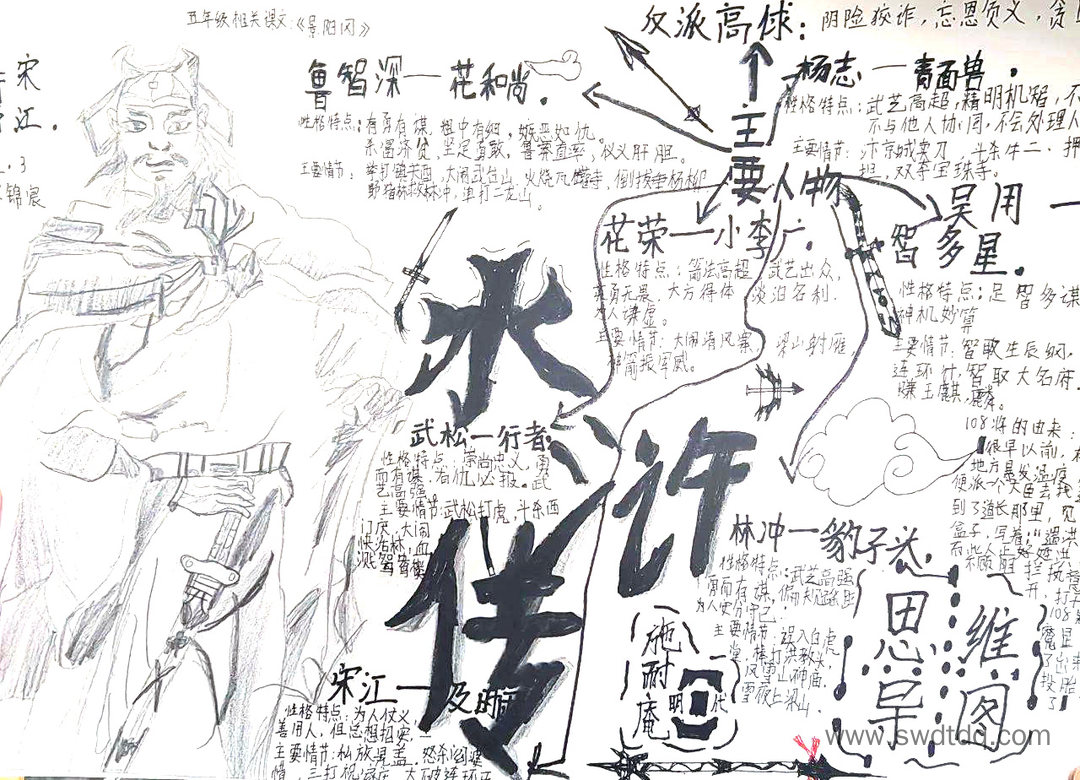 五年级相关课文:《景阳冈》
反派高俅:阴险狡诈,忘恩负义,贪
宋
江.
.3
锦宸
鲁智深一花和尚.
性格特点:有勇有谋,粗中有细,嫉恶如仇。
杀富济贫,坚定勇敢,鲁莽直率,仗义肝胆。
主要情节:拳打镇关西,大闹五台山,火烧瓦罐寺,倒拔垂杨柳
野猪林救林冲,单打二龙山。
主要人物
杨志一青面兽.
性格特点:武艺高超,精明机智,不
不与他人协同,不会处理人
主要情节:汴京城卖刀,斗杀牛二,押
担,双夺宝珠寺。
吴用一
智多星.
性格特点:足智多谋
神机妙算
主要情节:智取生辰纲,
连环计,智取大名府.
赚玉麒麟。
花荣一小李广.
性格特点:箭法高超,武艺出众,
英勇无畏,大方得体,淡泊名利.
为人谦虚。
主要情节:大闹清风寨,梁山射雁
神箭振军威。
水浒传
武松一行者
性格特点:崇尚忠义,勇
而有谋,有仇必报。武
艺高强
主要情节:武松打虎,斗杀西
门庆,大闹
快活林,血
溅鸳鸯楼
108将的由来:
很早以前,
地方暴发温疫
便派一个大臣去找
到了道长那里,见
盒子,写着:"遇洪
开,打开
108
魔显
了出来
投胎
了
林冲一豹子头.
性格特点:武艺高强
勇而有谋,
为人安分守己
主要情节:误入白虎
堂,棒打洪教头,
风雪山神庙.
雪夜上梁山
施耐庵
明代
思维导图
宋江一及时雨
性格特点:为人仗义,
善用人,但总想招安,
主要情节:私放晁盖,怒杀阎婆
惜,三打祝家庄,大破连环马
www.swdtdq.com